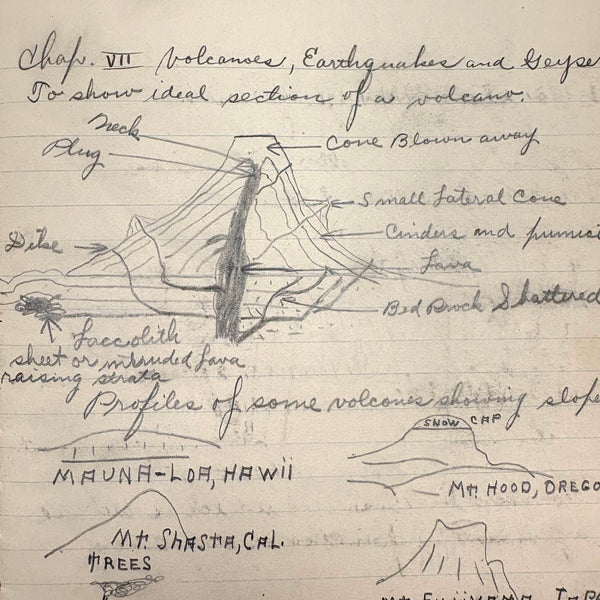 Chap. VII Volcanoes, Earthquakes and Geyse
To show ideal section of a volcano.
Neck
Plug
Cone Blown away
Small Lateral Cone
Cinders and pumic
Dike
Lava
Bed Rock Shattered
Laccolith
sheet or intruded lava
raising strata
Profiles of some volcones showing slope
SNOW CAP
MAUNA-LOA, HAWII
Mt. HOOD, OREGO
Mt. Shasta, CAL.
TREES
Mt. Fujiyama, JAPA